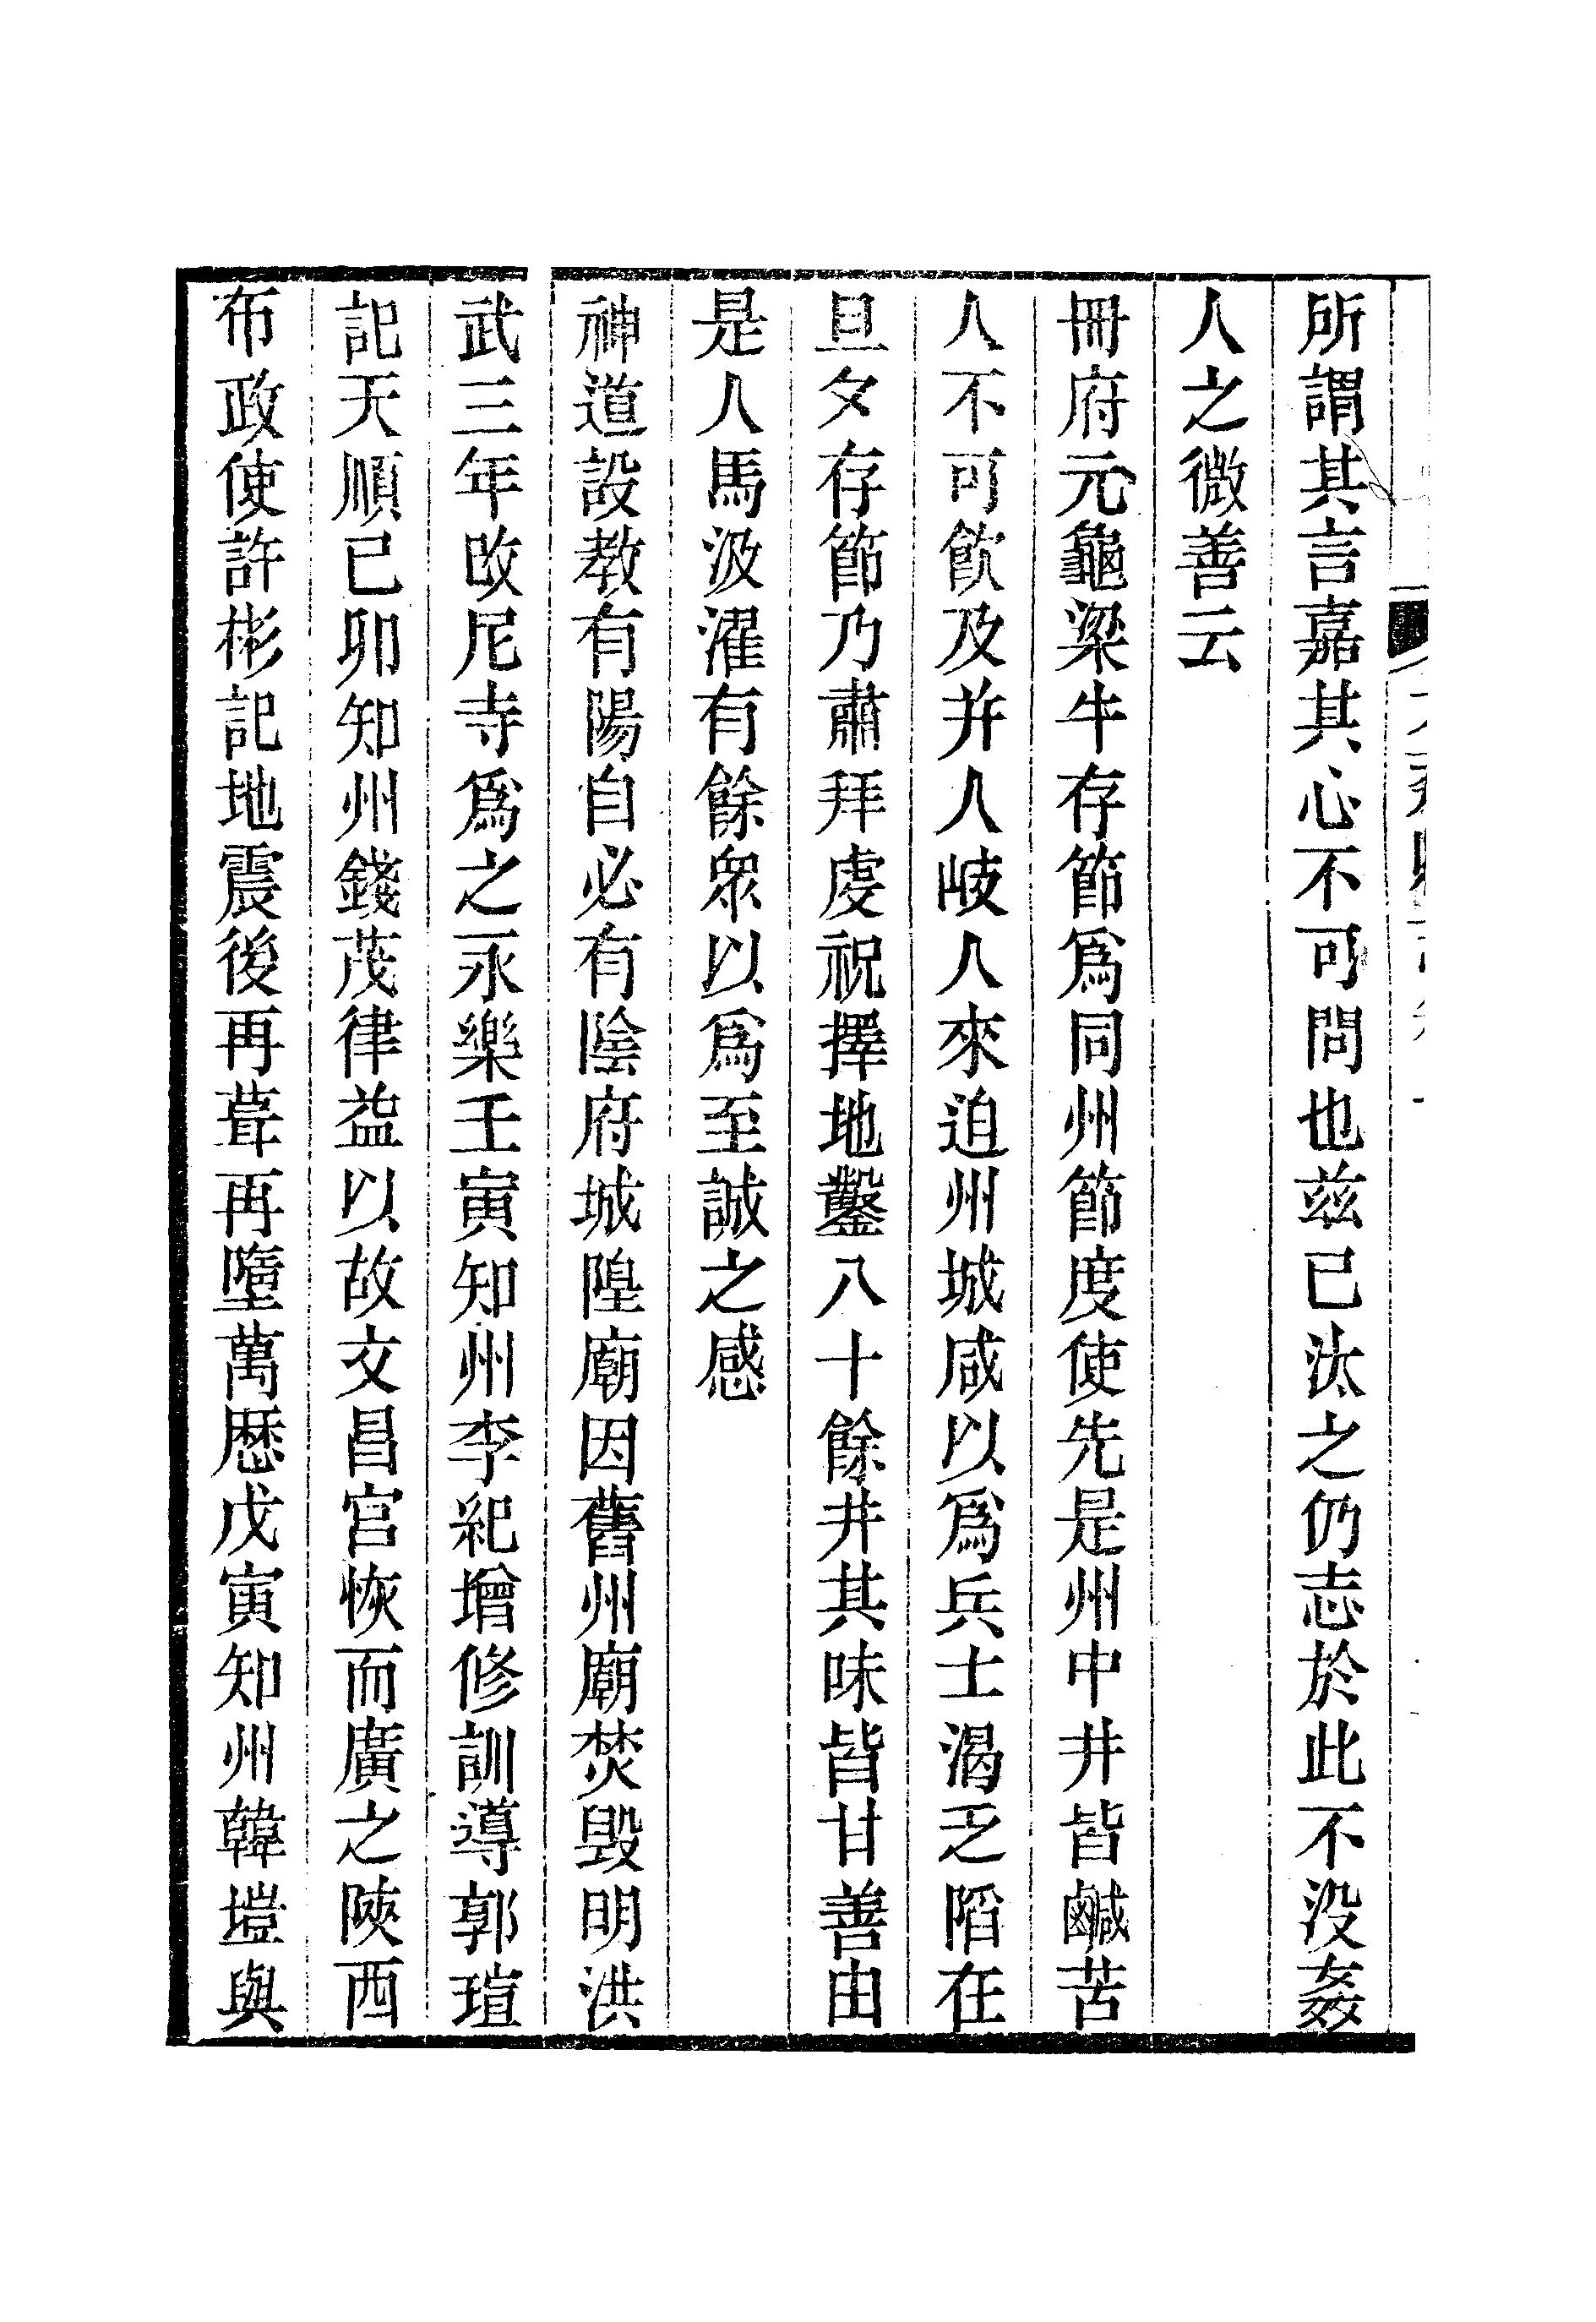 所謂其言嘉其心不可問也茲已汰之仍志於此不没姦
人之微善云
冊府元龜梁牛存節爲同州節度使先是州中井皆鹹苦
人不可飲及并人岐人來迫州城咸以爲兵士渴乏陷在
旦夕存節乃肅拜虔祝擇地鑿八十餘井其味皆甘善由
是人馬汲濯有餘衆以爲至誠之感
神道設教有陽自必有陰府城隍廟因舊州廟焚毀明洪
武三年改尼寺爲之永樂壬寅知州李紀增修訓導郭瑄
記天順已卯知州錢茂律益以故文昌宫恢而廣之陝西
布政使許彬記地震後再葺再墮萬歴戊寅知州韓塏與